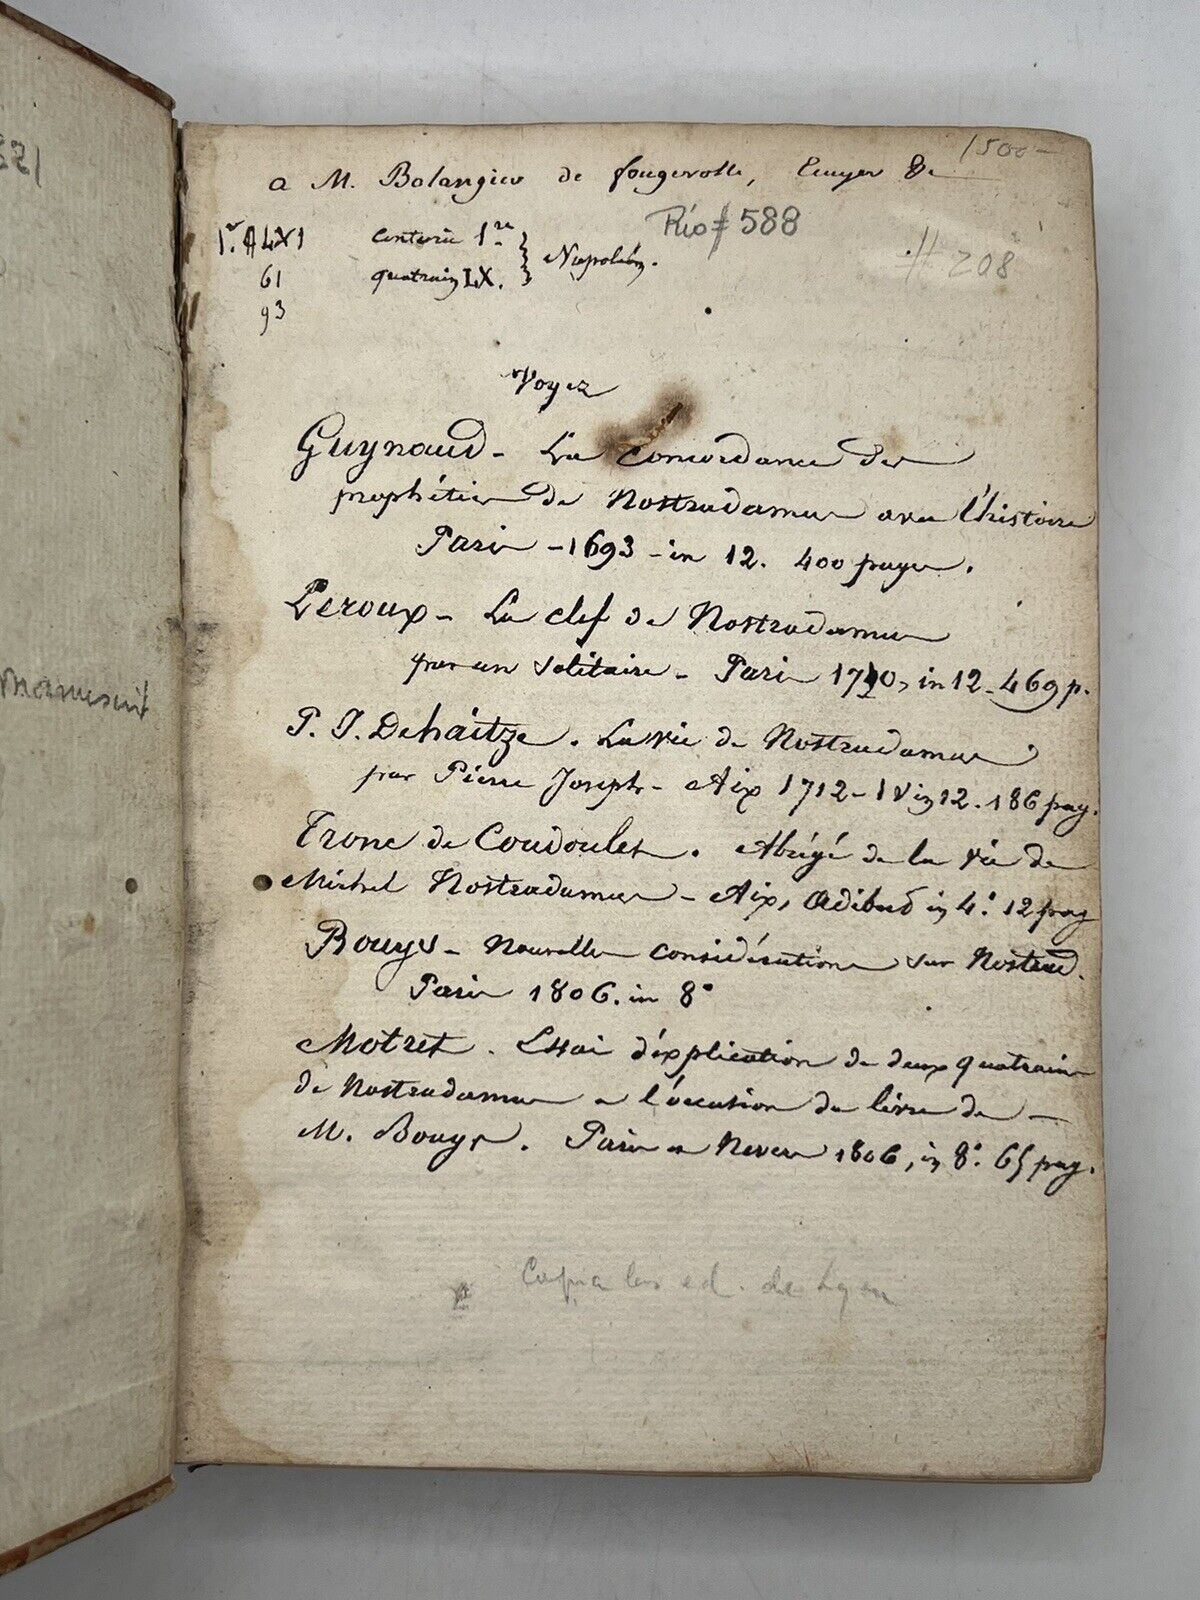 321
manuscrit
1500-
a M. Bolangier de fougerolle, Ecuyer &c
1r. ALXI centurie 1re
61 quatrain LX. } Napoléon.
93
Rio # 588
# 208
Voyez
Guynaud - La Concordance des
prophéties de Nostradamus avec l'histoire
Paris - 1693 - in 12. 400 pages.
Leroux - La clef de Nostradamus
par un Solitaire - Paris 1710, in 12 - 469 p.
P. J. De haitze. La vie de Nostradamus
par Pierre Joseph - Aix 1712 - 1 V in 12. 186 pag.
Tronc de Coudoulet. Abrégé de la vie de
Michel Nostradamus - Aix, Adibert in 4° 12 pag
Bouys - Nouvelles considérations sur Nostrad.
Paris 1806. in 8°
Motret. Essai d'explication de deux quatrains
de Nostradamus a l'occasion du livre de
M. Bouys. Paris et Nevers 1806, in 8°. 65 pag.
Copia ed. de Lyon